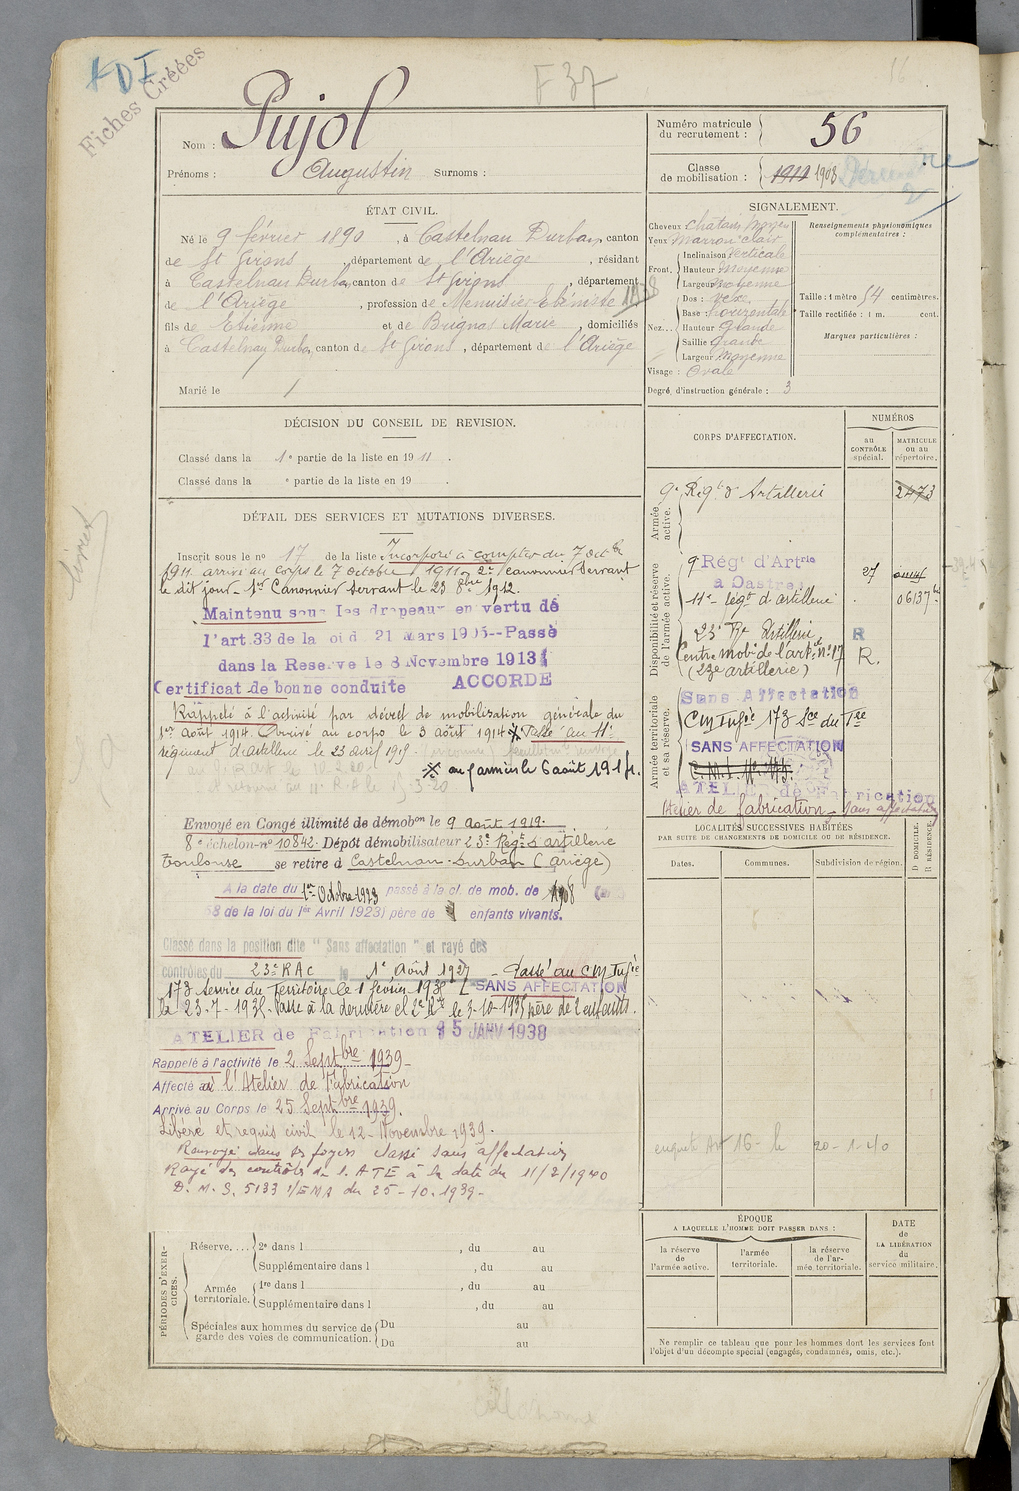 Fiches Créées
F 37
16
Nom : Pujol
Prénoms : Augustin Surnoms :
Numéro matricule du recrutement : 56
Classe de mobilisation : 1911 1908
ÉTAT CIVIL.
Né le 9 février 1890, à Castelnau Durban, canton
de St Girons, département de l'Ariège, résidant
à Castelnau Durban, canton de St Girons, département
de l'Ariège, profession de Menuisier Ebéniste
fils de Etienne et de Brignas Marie, domiciliés
à Castelnau Durban, canton de St Girons, département de l'Ariège
Marié le /
SIGNALEMENT.
Cheveux chatain moyen
Yeux Marron clair
Front. Inclinaison Verticale
Hauteur Moyenne
Largeur Moyenne
Nez... Dos :
Base : Horizontale
Hauteur Grande
Saillie Grande
Largeur Moyenne
Visage : Ovale
Degré d'instruction générale : 3
Renseignements physionomiques complémentaires :
Taille : 1 mètre 54 centimètres.
Taille rectifiée : 1 m. cent.
Marques particulières :
DÉCISION DU CONSEIL DE REVISION.
Classé dans la 1e partie de la liste en 1911.
Classé dans la e partie de la liste en 19 .
DÉTAIL DES SERVICES ET MUTATIONS DIVERSES.
Inscrit sous le no 17 de la liste Incorporé à compter du 7 octbre
1911 arrivé au corps le 7 octobre 1911 2e canonnier servant
le dit jour - 1er Canonnier servant le 23 8bre 1912.
Maintenu sous les drapeaux en vertu de
l'art. 33 de la loi d 21 Mars 1905--Passé
dans la Reserve le 8 Novembre 1913
Certificat de bonne conduite ACCORDE
Rappelé à l'activité par décret de mobilisation générale du
1er Août 1914. Arrivé au corps le 3 août 1914 Passé au 11e
régiment d'artillerie le 23 avril 1919.
aux armées le 6 août 1914.
Envoyé en Congé illimité de démobon le 9 Août 1919.
8e échelon no 10843. Dépôt démobilisateur 23e Régt d'artillerie
Toulouse se retire à Castelnau-Durban (Ariège)
A la date du 1er Octobre 1923 passé à la cl. de mob. de 1908
58 de la loi du 1er Avril 1923) père de enfants vivants.
Classé dans la position dite " Sans affectation " et rayé des
contrôles du 23e RAC le 1e Août 1927 - Passé au CM Infrie
173 Service du Territoire le 1 février 1935 SANS AFFECTATION
le 23-7-1935. Passé à la dernière et 2e Rve le 3-10-1935 père de 2 enfants.
ATELIER de Fabrication 15 JANV 1938
Rappelé à l'activité le 2 Septbre 1939
Affecté à l'Atelier de Fabrication
Arrivé au Corps le 25 Septbre 1939.
Libéré et requis civil le 12 Novembre 1939.
Renvoyé dans ses foyers Classé sans affectation
Rayé des contrôles de l'ATE à la date du 11/2/1940
D.M.S. 5133 1/EMA du 25-10-1939-
CORPS D'AFFECTATION.
NUMÉROS
au CONTRÔLE spécial.
MATRICULE ou au répertoire.
Armée active.
9e Régt d'Artillerie 2473
Disponibilité et réserve de l'armée active.
9 Régt d'Artrie à Castres 27
11e régt d'artillerie 06137
23e Rt Artillerie R
Centre mobe de l'artie no 17 R.
(23e artillerie)
Armée territoriale et sa réserve.
Sans Affectation
CM Infrie 173 Sce du Tre
SANS AFFECTATION
C.M.I. No 173.
ATELIER de Fabrication
Atelier de fabrication - Sans affectation
LOCALITÉS SUCCESSIVES HABITÉES
PAR SUITE DE CHANGEMENTS DE DOMICILE OU DE RÉSIDENCE.
Dates. Communes. Subdivision de région. D DOMICILE. R RÉSIDENCE.
enquete Art 16 - le 20-1-40
PÉRIODES D'EXERCICES.
Réserve.... 2e dans l , du au
Supplémentaire dans l , du au
Armée territoriale. 1re dans l , du au
Supplémentaire dans l , du au
Spéciales aux hommes du service de garde des voies de communication. Du au
Du au
ÉPOQUE
A LAQUELLE L'HOMME DOIT PASSER DANS :
la réserve de l'armée active.
l'armée territoriale.
la réserve de l'armée territoriale.
DATE de LA LIBÉRATION du service militaire.
Ne remplir ce tableau que pour les hommes dont les services font
l'objet d'un décompte spécial (engagés, condamnés, omis, etc.).